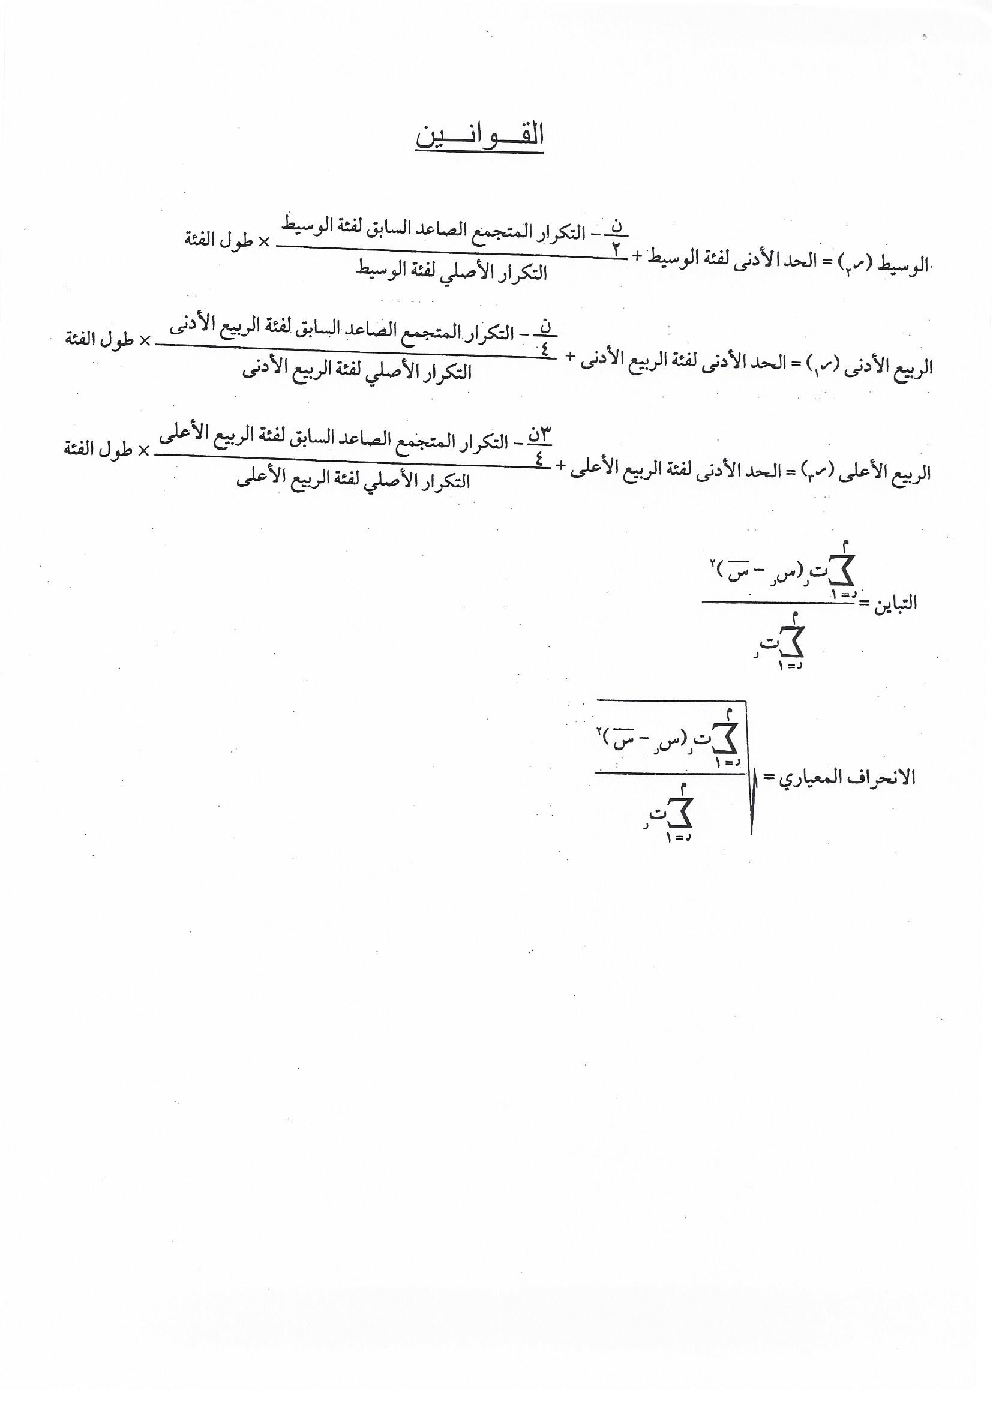 القوانين
الوسيط (ر٢) = الحد الأدنى لفئة الوسيط + (ن/٢ - التكرار المتجمع الصاعد السابق لفئة الوسيط) / التكرار الأصلي لفئة الوسيط × طول الفئة
الربيع الأدنى (ر١) = الحد الأدنى لفئة الربيع الأدنى + (ن/٤ - التكرار المتجمع الصاعد السابق لفئة الربيع الأدنى) / التكرار الأصلي لفئة الربيع الأدنى × طول الفئة
الربيع الأعلى (ر٣) = الحد الأدنى لفئة الربيع الأعلى + (٣ن/٤ - التكرار المتجمع الصاعد السابق لفئة الربيع الأعلى) / التكرار الأصلي لفئة الربيع الأعلى × طول الفئة
التباين = م∑ر=١ ت ر (س ر - س̅)٢ / م∑ر=١ ت ر
الانحراف المعياري = √ م∑ر=١ ت ر (س ر - س̅)٢ / م∑ر=١ ت ر